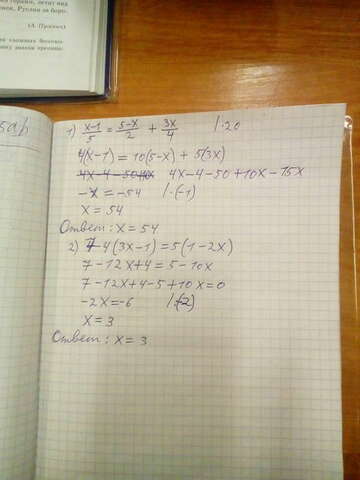 (А. Пушкин)
1) x-1/5 = 5-x/2 + 3x/4 |·20
4(x-1) = 10(5-x) + 5(3x)
4x-4-50+10x-15x
-x = -54 |·(-1)
x = 54
Ответ: x = 54
2) 7-4(3x-1) = 5(1-2x)
7-12x+4 = 5-10x
7-12x+4-5+10x=0
-2x=-6 |:(-2)
x = 3
Ответ: x = 3